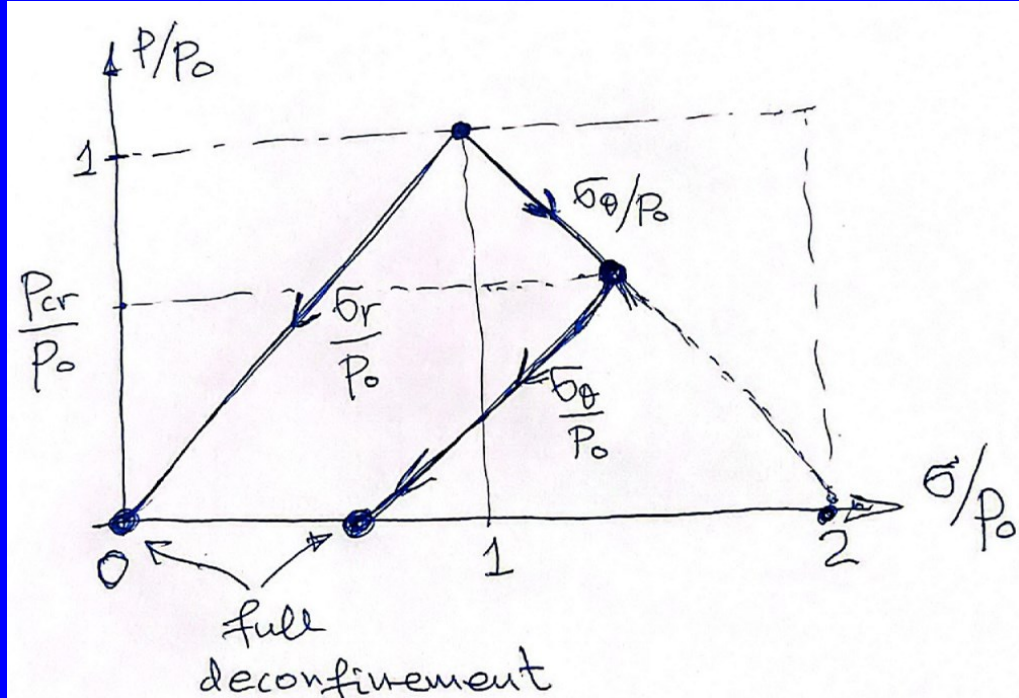 P/P₀
1
σ_θ/P₀
P_cr/P₀
σ_r/P₀
σ_θ/P₀
σ/P₀
0
1
2
full
deconfinement